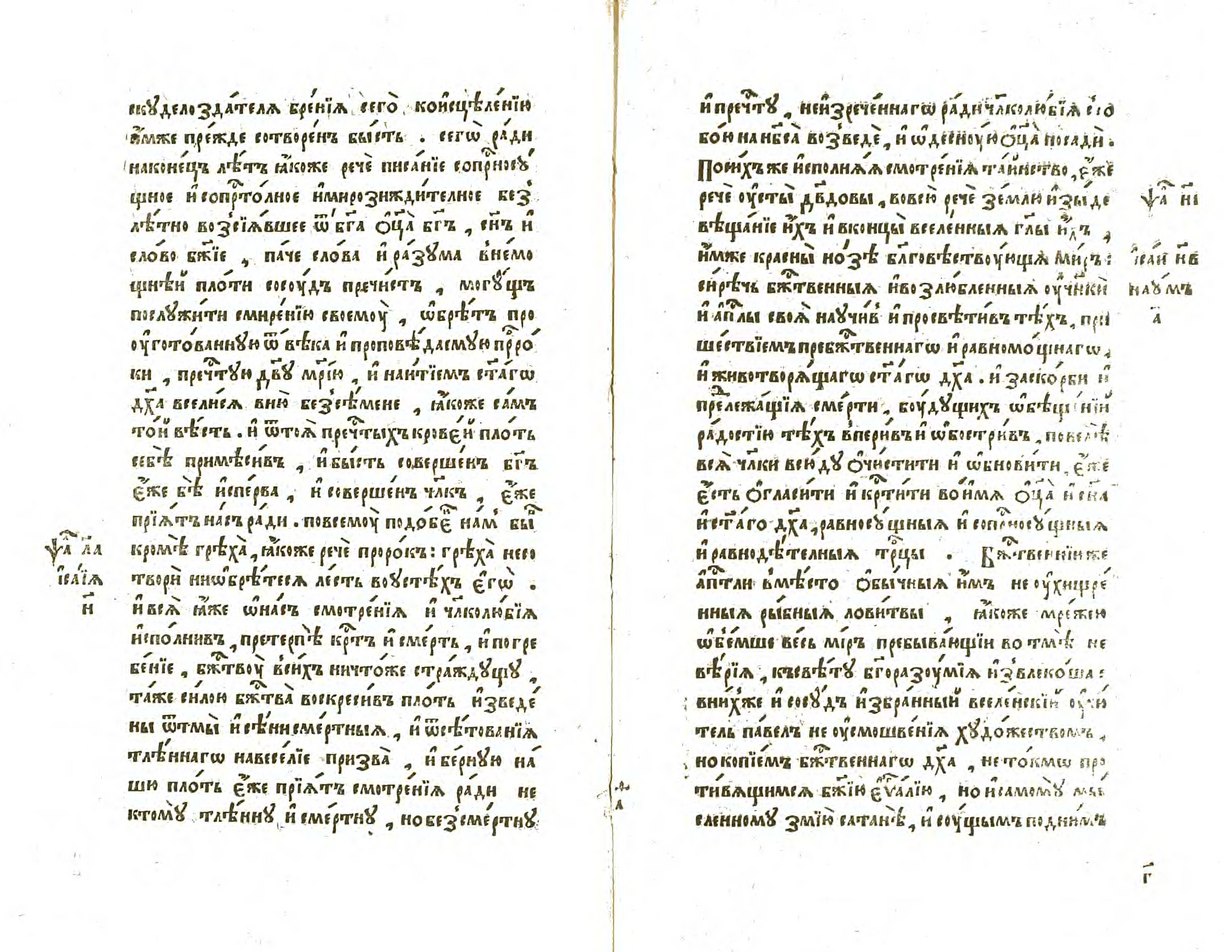 скꙋделоздáтелѧ брéнїѧ сегò коисцѣлéнїю
и҆́мже прéжде сотворéнъ бы́сть . сегѡ̀ рáди
наконéцъ лѣ́тъ ꙗ҆́коже речè писáнїе сопрⷭ҇носꙋ́
щное и҆ сопрⷭ҇тóлное и҆мирозижди́телное без̾
лѣ́тно возсїѧ́вшее ѿ бг҃а ѻ҆ц҃à бг҃ъ , сн҃ъ и҆
слóво бж҃їе , пáче слóва и҆ рáзꙋма внемо
щнѣ́й плóти сосꙋ́дъ пречи́стъ , могꙋ́щъ
послꙋжи́ти смирéнїю своемꙋ̀ , ѡ҆брѣ́тъ про
оу҆готóваннꙋю ѿ вѣ́ка и҆ проповѣ́даемꙋю прⷪ҇рó
ки , пречⷭ҇тꙋю дв҃ꙋ мр҃і́ю , и҆ наи́тїемъ ст҃áгѡ
дх҃а всели́сѧ в̾ню̀ без̾сѣ́мене , ꙗ҆́коже сáмъ
тóй вѣ́сть . и҆ ѿтоѧ̀ пречⷭ҇тыхъ кровéй плóть
себѣ̀ примѣси́въ , и҆ бы́сть совершéнъ бг҃ъ
є҆́же бѣ̀ и҆спéрва , и҆ совершéнъ чл҃къ , є҆́же
прїѧ́тъ нáсъ рáди . повсемꙋ̀ подóбе нáм̾ бы́
кромѣ̀ грѣхà , ꙗ҆́коже речè прорóкъ : грѣхà несо
творѝ ниѡ҆брѣ́тесѧ лéсть воустѣ́хъ є҆гѡ̀ .
и҆ всѧ̀ ꙗ҆́же ѡ҆нáсъ смотрéнїѧ и҆ чл҃колю́бїѧ
и҆спóлнив , претерпѣ̀ крⷭ҇тъ и҆ смéрть , и҆ погре
бéнїе , бжⷭ҇твꙋ̀ в̾си́хъ ничтóже стрáждꙋщꙋ ,
тáже си́лою бжⷭ҇твà воскреси́въ плóть и҆зведé
ны ѿтмы̀ и҆ сѣ́ни смéртныѧ , и҆ ѿсѣ́тованїѧ
тлѣ́ннагѡ навесéлїе призвà , и҆ бéрнꙋю нá
шꙋ плóть є҆́же прїѧ́тъ смотрéнїѧ рáди не
ктомꙋ̀ тлѣ́ннꙋ , и҆ смéртнꙋ , но без̾смéртнꙋ
ѱⷶ҇ ла
і҆сáїѧ
н҃
и҆ пречⷭ҇тꙋ , неи҆зречéннагѡ рáди чл҃колю́бїѧ сⸯо
бóю нанб҃са̀ возведè , и҆ ѡ҆деснꙋ́ю ѻ҆ц҃à посадѝ .
Поси́хъ же и҆сполнѧ́ѧ смотрéнїѧ тáинство , є҆́же
речè оу҆сты̀ дв҃дóвы , вовсю̀ речè зéмлю и҆зы́де
вѣщáнїе и҆́хъ и҆ вконцы̀ вселéнныѧ гл҃ы и҆́хъ ,
и҆́мже красны̀ нóзѣ бл҃говѣствꙋ́ющиѧ ми́ръ :
си́рѣчь бжⷭ҇твенныѧ и҆возлю́бленныѧ оу҆ченикѝ
и҆ апⷭ҇лы своѧ̀ научи́в и҆ просвѣти́въ тѣ́хъ , при
шéствїемъ пребжⷭ҇твеннагѡ и҆ равномóщнагѡ ,
и҆ животворѧ́щагѡ ст҃áгѡ дх҃а . и҆ заскóрби и҆
прележáщїѧ смéрти , бꙋ́дꙋщихъ ѡ҆бѣщáнїй
рáдостїю тѣ́хъ впери́въ и҆ ѡ҆бостри́въ , повелѣ̀
всѧ̀ чл҃ки всю́дꙋ ѻ҆чи́стити и҆ ѡ҆бнови́ти , є҆́же
є҆́сть ѻ҆гласи́ти и҆ крⷭ҇ти́ти во и҆́мѧ ѻ҆ц҃à и҆ сн҃а
и҆ ст҃áго дх҃а , равносꙋ́щныѧ и҆ сопрⷭ҇носꙋ́щныѧ
и҆ равнодѣ́телныѧ трⷪ҇цы . Бжⷭ҇твеннїи же
апⷭ҇тли в̾мѣ́сто ѻ҆бы́чныѧ и҆́мъ не оу҆хищрé
нныѧ ры́бныѧ лови́твы , ꙗ҆́коже мрéжею
ѡ҆б̾éмше вéсь мíръ пребывáющїи во тмѣ̀ не
вѣ́рїѧ , къ свѣ́тꙋ бг҃оразꙋ́мїѧ и҆звлекóша :
вни́х̾же и҆ сосꙋ́дъ и҆збрáнный вселéнскїй оу҆чи
тель пáвелъ не оу҆смошвéнїѧ хꙋдóжествомъ ,
но копїéмъ бжⷭ҇твеннагѡ дх҃а , не тóкмѡ про
ти́вѧщимсѧ бж҃їю є҆ѵⷢ҇алїю , но и҆ самомꙋ̀ мы
сленномꙋ ѕмíю сатанѣ̀ , и҆ сꙋ́щымъ под̾ни́мъ
ѱⷶ҇ иі
і҆сáи н҃в
наꙋ́мъ
а҃
г҃